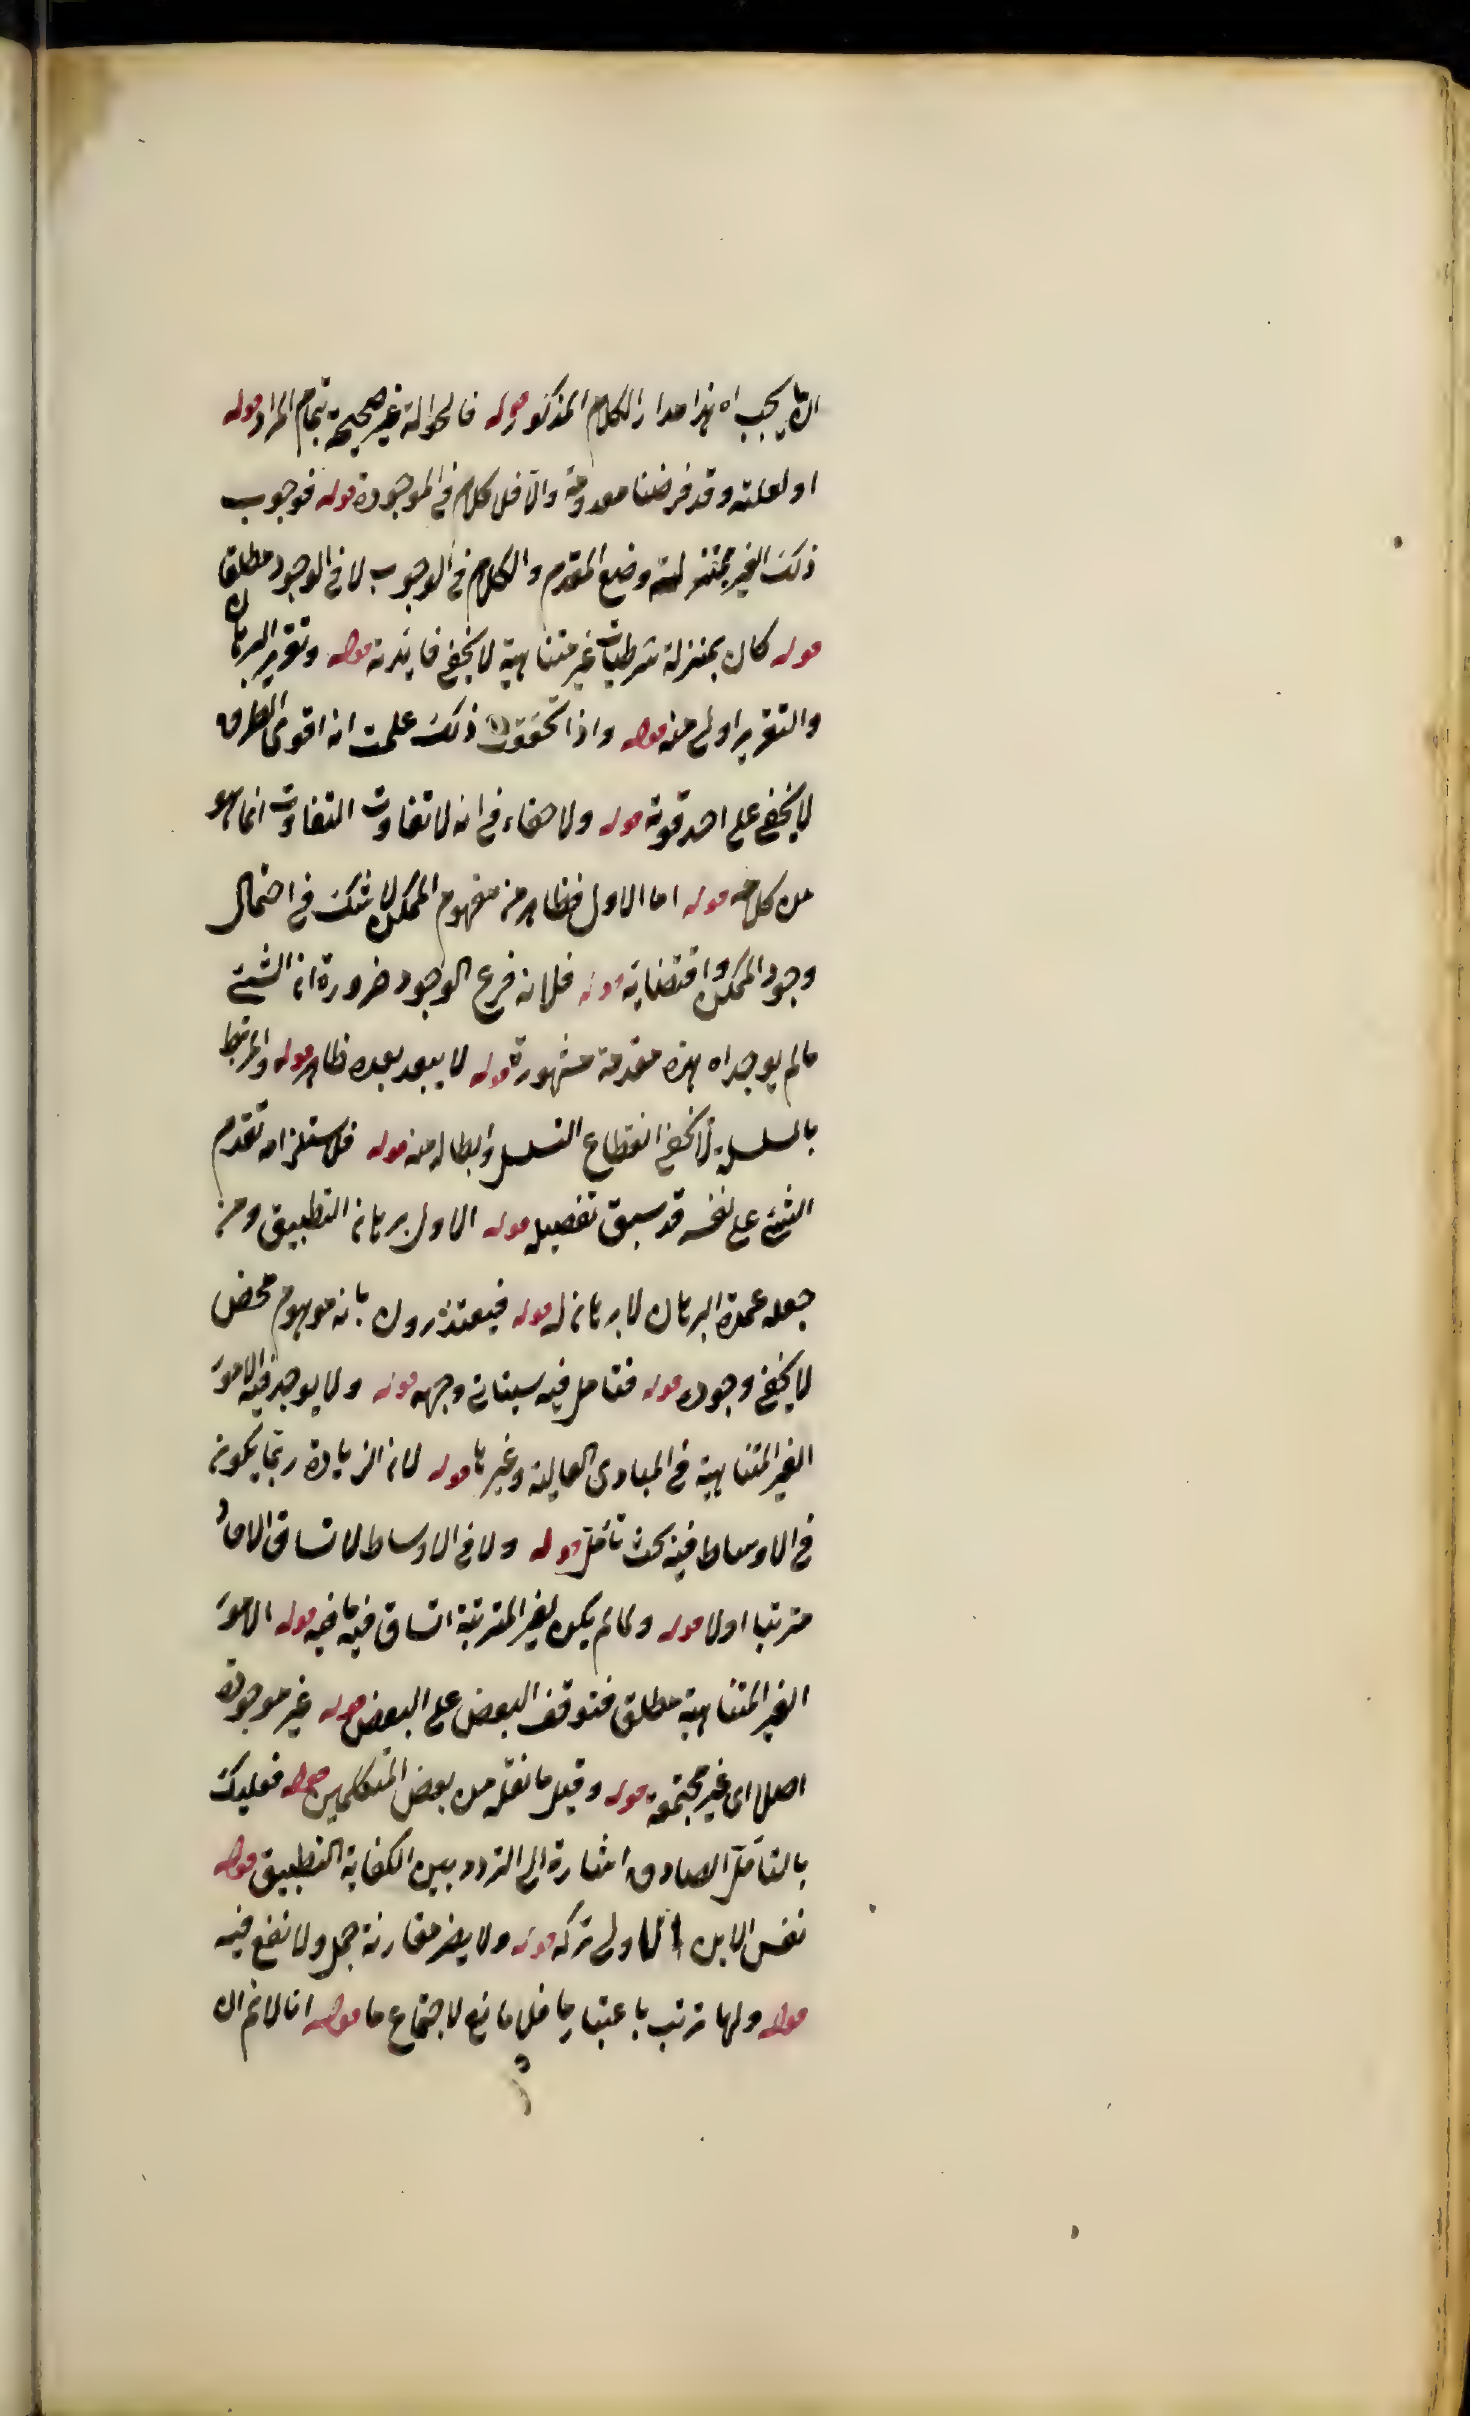 يجب اه هذا مدار الكلام المذكور قوله فالحوالة غير صحيحة بتمام المراد قوله
او لعلته وقد فرضنا معدومة والا فلا كلام في الموجودة قوله فوجوب
ذلك الغير بمنزلة وضع المقدم والكلام في الوجوب لا في الوجود مطلقا
قوله كان بمنزلة شرطيات غير متناهية لا يخفى فايدته قوله وتقرير البرهان
والتقرير اولى منه قوله واذا تحققت ذلك علمت انه اقوى الطرق
لا يخفى على احد قوته قوله ولا خفاء في انه لا تفاوت التفاوت انما هو
من كلامه قوله اما الاول فظاهر من مفهوم الممكن لا شك في احتمال
وجود الممكن واقتضايه قوله فلانه فرع الوجود ضرورة ان الشيء
ما لم يوجد اه هذه مقدمة مشهورة قوله لا يبعد بعده ظاهر قوله والمرتبط
بالسلسلة لا يخفى انقطاع التسلسل وابطاله منه قوله فلاستلزامه تقدم
الشيء على نفسه قد سبق تفصيله قوله الاول برهان التطبيق ومن
جعله عمدة البرهان لا برهان له قوله فيعتذرون بانه موهوم محض
لا يخفى وجوده قوله فتأمل فيه سيتاتى وجهه قوله ولا يوجد فيه الامور
الغير المتناهية في المبادى العالية وغيرها قوله لان الزيادة ربما يكون
في الاوساط فيه بحث تأمل قوله ولا في الاوساط لاتساق الاحاد
مترتبا اولا قوله ولما لم يكن لغير المترتبة اتساق فيه ما فيه قوله الامور
الغير المتناهية مطلق فتوقف البعض على البعض قوله غير موجودة
اصلا اى غير مجتمعة قوله وقيل ما نقله من بعض المتكلمين قوله فعليك
بالتأمل الصادق اشارة الى التردد بين الكفاية التطبيق قوله
نفس الابن الاولى تركه قوله ولا يضر مقارنة جمل ولا نفع فيه
قوله ولها ترتب باعتبار ما فلا مانع لاجتماع ما قوله انا لا نم ان